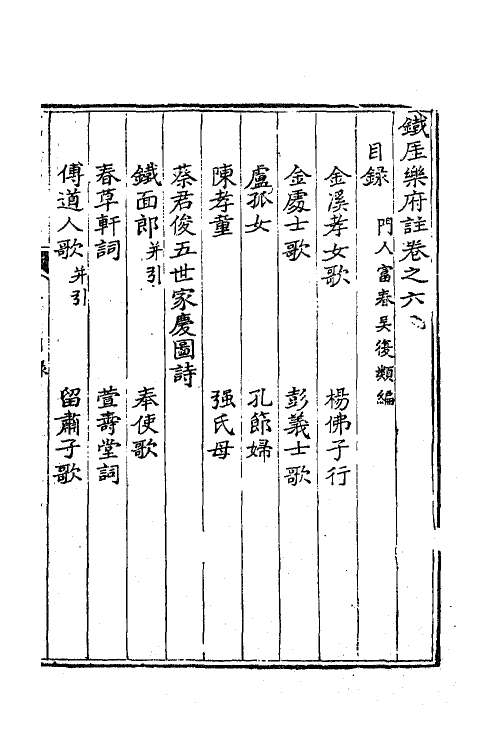 鐵厓樂府註卷之六
目錄　門人富春吳復類編
金溪孝女歌　楊佛子行
金處士歌　彭義士歌
盧孤女　孔節婦
陳孝童　强氏母
蔡君俊五世家慶圖詩
鐵面郎并引　奉使歌
春草軒詞　萱壽堂詞
傅道人歌并引　留肅子歌